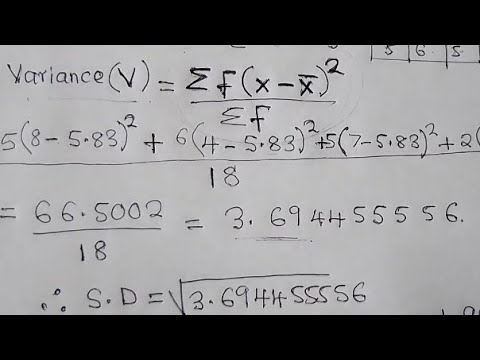 5 6 5
Variance(V) = Σf(x-x̄)²
Σf
5(8-5.83)² + 6(4-5.83)²+5(7-5.83)²+2(
18
= 66.5002 = 3.694455556.
18
∴ S.D = √3.694455556